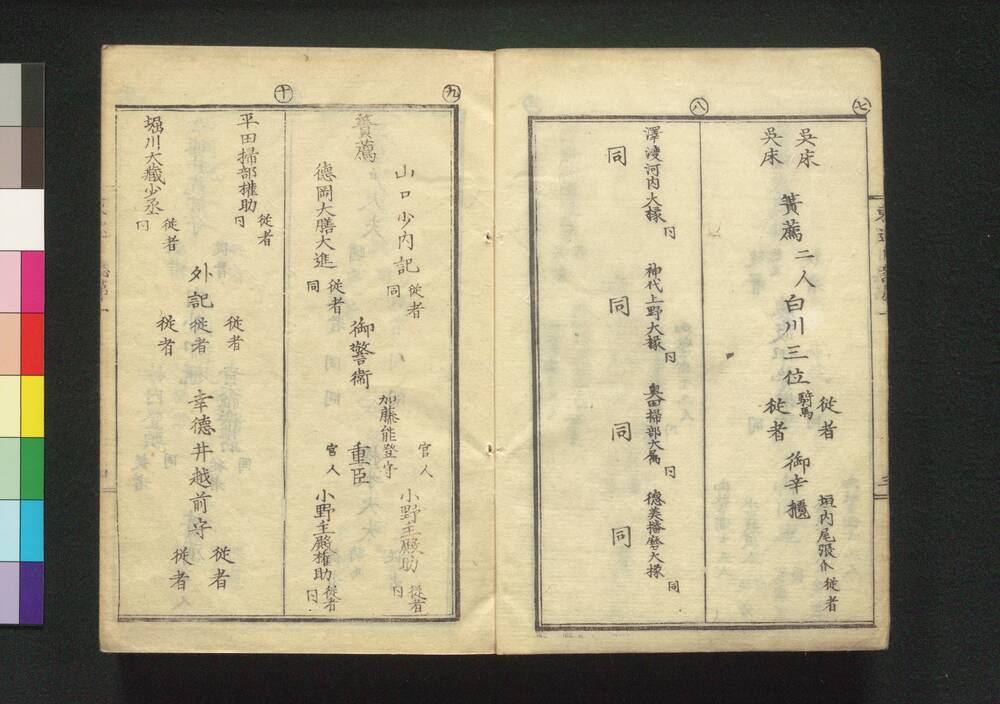 七
呉床
呉床
簀薦二人
白川三位
騎馬
従者
従者
御辛櫃
垣内尾張介
従者
八
澤渡河内大掾
同
神代上野大掾
同
奥田掃部大属
同
德美播磨大掾
同
同
同
同
同
九
山口少内記
従者
同
官人
小野主殿助
従者
同
簀薦
德岡大膳大進
従者
同
御警衛
加藤能登守
重臣
官人
小野主殿権助
従者
同
十
平田掃部権助
従者
同
堀川大蔵少丞
従者
同
外記
従者
従者
従者
幸德井越前守
従者
従者